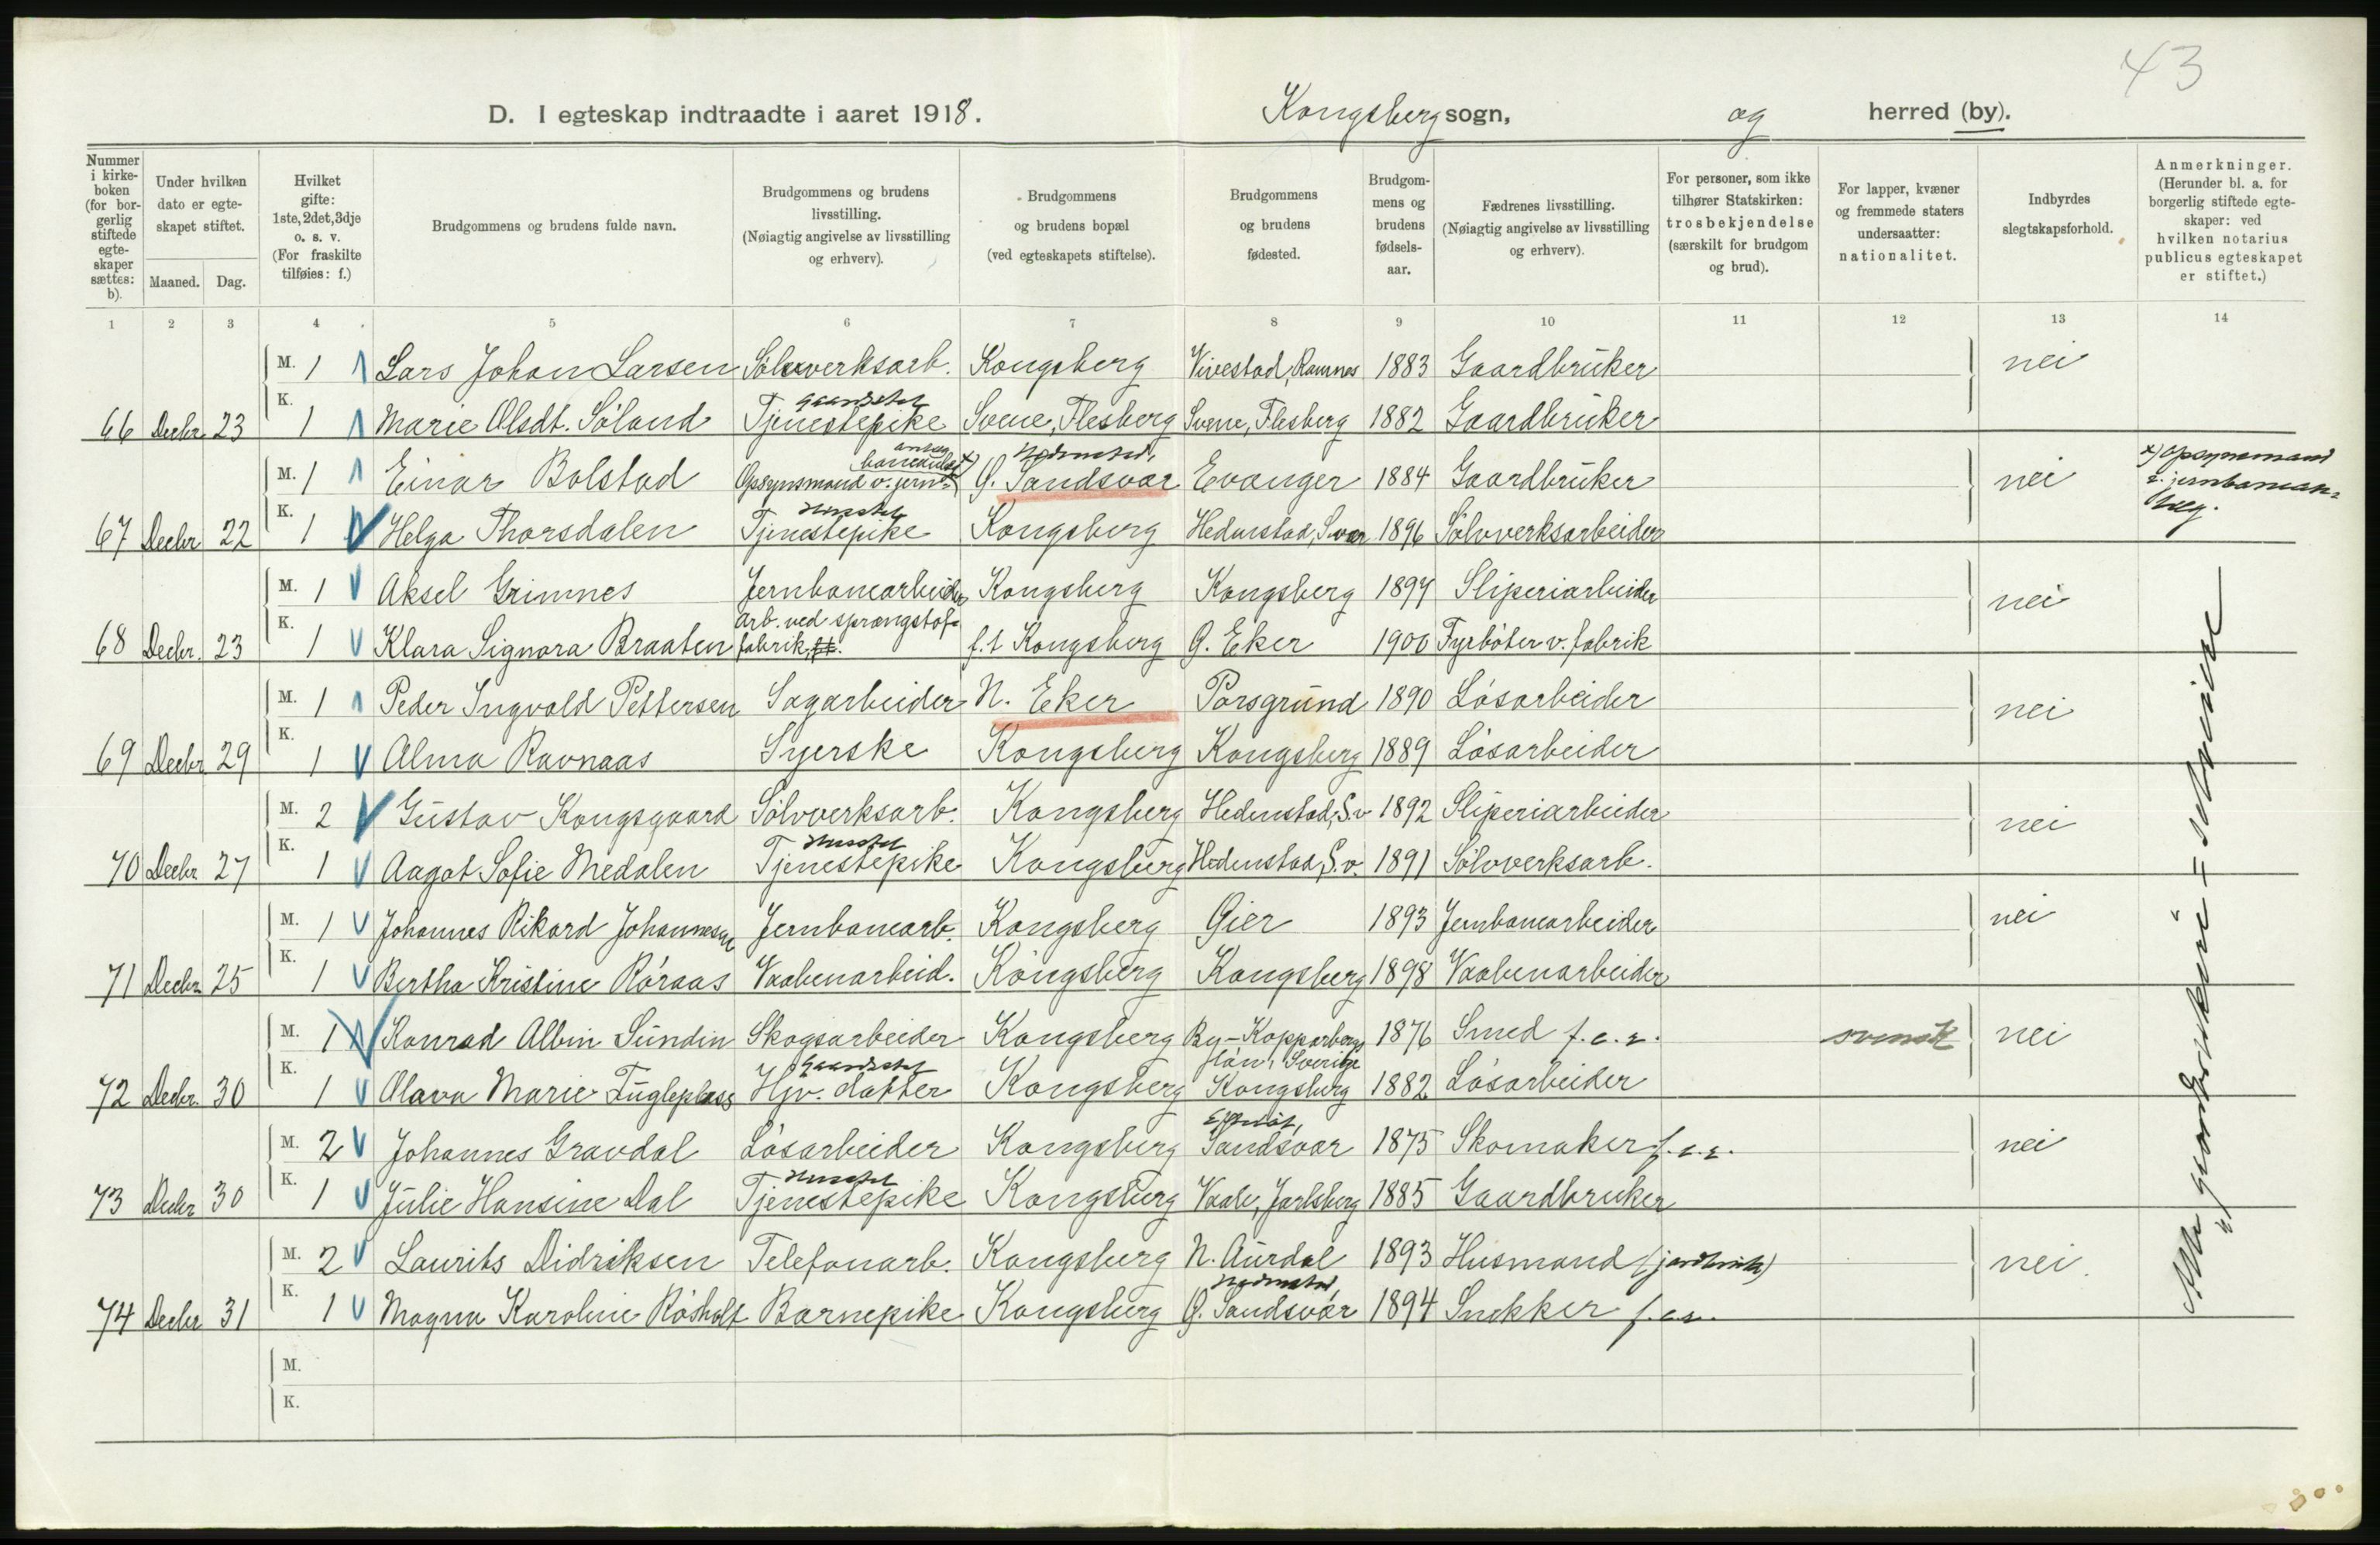 43
D. I egteskap indtraadte i aaret 1918. Kongsberg sogn, og herred (by).
Nummer i kirke-boken (for bor-gerlig stiftede egte-skaper sættes: b). Under hvilken dato er egte-skapet stiftet. Maaned. Dag. Hvilket gifte: 1ste, 2det, 3dje o. s. v. (For fraskilte tilføies: f.) Brudgommens og brudens fulde navn. Brudgommens og brudens livsstilling. (Nøiagtig angivelse av livsstilling og erhverv). Brudgommens og brudens bopæl (ved egteskapets stiftelse). Brudgommens og brudens fødested. Brudgom-mens og brudens fødsels-aar. Fædrenes livsstilling. (Nøiagtig angivelse av livsstilling og erhverv). For personer, som ikke tilhører Statskirken: trosbekjendelse (særskilt for brudgom og brud). For lapper, kvæner og fremmede staters undersaatter: nationalitet. Indbyrdes slegtskapsforhold. Anmerkninger. (Herunder bl. a. for borgerlig stiftede egte-skaper: ved hvilken notarius publicus egteskapet er stiftet.)
1 2 3 4 5 6 7 8 9 10 11 12 13 14
M. 1 Lars Johan Larsen Sølvverksarb. Kongsberg Vivestad, Ramnes 1883 Gaardbruker nei
gaardstel
66 Decbr. 23 K. 1 Marie Olsdt. Söland Tjenestepike Svene, Flesberg Svene, Flesberg 1882 Gaardbruker
anlæg Hedenstad,
M. 1 Einar Bolstad Opsynsmand v. jern= baneanlæg x) Ø. Sandsvær Evanger 1884 Gaardbruker nei x) Opsynsmand v. jernbanean= læg.
Husstel
67 Decbr 22 K. 1 Helga Thorsdalen Tjenestepike Kongsberg Hedenstad, S.vær 1896 Sølvverksarbeider
M. 1 Aksel Grimnes Jernbanearbeider Kongsberg Kongsberg 1897 Sliperiarbeider nei
68 Decbr. 23 K. 1 Klara Signora Braaten Arb. ved sprængstof= fabrik f.t Kongsberg Ø. Eker 1900 Fyrbøter v. fabrik
M. 1 Peder Ingvald Pettersen Sagarbeider N. Eker Porsgrund 1890 Løsarbeider nei
69 Decbr 29 K. 1 Alma Ravnaas Syerske Kongsberg Kongsberg 1889 Løsarbeider
M. 2 Gustav Kongsgaard Sølvverksarb. Kongsberg Hedenstad, S.v 1892 Sliperiarbeider nei
Husstel
70 Decbr 27 K. 1 Aagot Sofie Medalen Tjenestepike Kongsberg Hedenstad, S.v. 1891 Sølvverksarb.
M. 1 Johannes Rikard Johannesen Jernbanearb. Kongsberg Gier 1893 Jernbanearbeider nei
71 Decbr 25 K. 1 Bertha Kristine Røraas Vaabenarbeid. Kongsberg Kongsberg 1898 Vaabenarbeider
M. 1 Konrad Albin Sundin Skogsarbeider Kongsberg By-Kopparbergs län, Sverige 1876 Smed f.e.r. svensk nei
Gaardstel
72 Decbr. 30 K. 1 Olava Marie Fugleplass Hjv. datter Kongsberg Kongsberg 1882 Løsarbeider
M. 2 Johannes Gravdal Løsarbeider Kongsberg Sandsvær 1875 Skomaker f.e.r. nei
Husstel
73 Decbr 30 K. 1 Julie Hansine Dal Tjenestepike Kongsberg Vaale, Jarlsberg 1885 Gaardbruker
M. 2 Laurits Didriksen Telefonarb. Kongsberg N. Aurdal 1893 Husmand (jordbruk) nei.
Hedenstad,
74 Decbr 31 K. 1 Magna Karoline Røsholt Barnepike Kongsberg Ø. Sandsvær 1894 Snekker f.e.r.
M.
K.
Alle "gaardbrukere" = selveiere